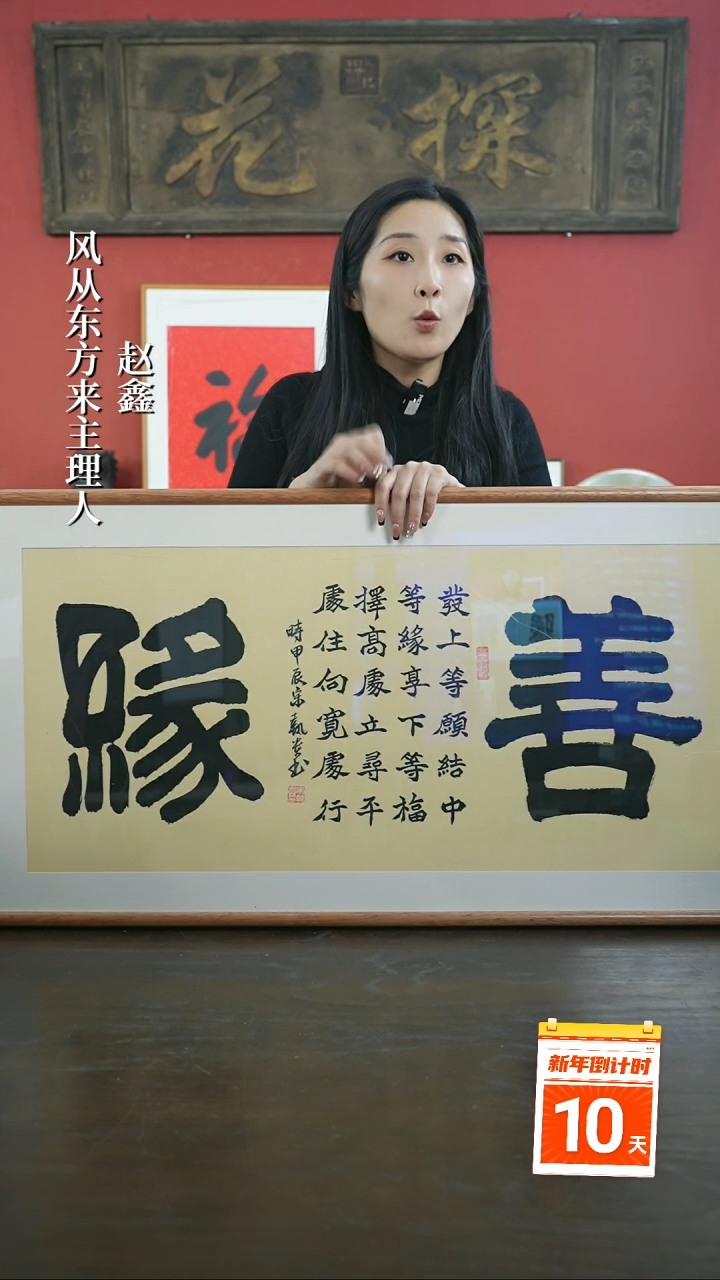 探花
赵鑫
风从东方来主理人
福
善緣
發上等願結中
等緣享下等福
擇高處立尋平
處住向寬處行
時甲辰宗勳書
新年倒计时
10天